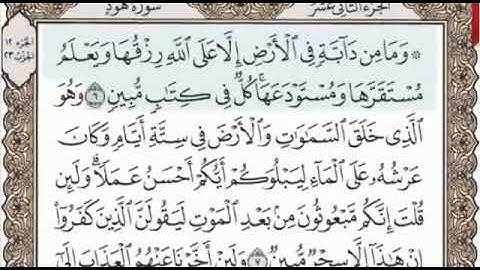 الجزء الثاني عشر
سورة هود
الجزء ١٢
الحزب ٢٣
۞ وَمَا مِن دَآبَّةٍ فِي ٱلْأَرْضِ إِلَّا عَلَى ٱللَّهِ رِزْقُهَا وَيَعْلَمُ
مُسْتَقَرَّهَا وَمُسْتَوْدَعَهَاۚ كُلٌّ فِي كِتَٰبٍ مُّبِينٍ ٦ وَهُوَ
ٱلَّذِي خَلَقَ ٱلسَّمَٰوَٰتِ وَٱلْأَرْضَ فِي سِتَّةِ أَيَّامٍ وَكَانَ
عَرْشُهُۥ عَلَى ٱلْمَآءِ لِيَبْلُوَكُمْ أَيُّكُمْ أَحْسَنُ عَمَلًاۗ وَلَئِن
قُلْتَ إِنَّكُم مَّبْعُوثُونَ مِنۢ بَعْدِ ٱلْمَوْتِ لَيَقُولَنَّ ٱلَّذِينَ كَفَرُوٓاْ
إِنْ هَٰذَآ إِلَّا سِحْرٌ مُّبِينٌ ٧ وَلَئِنْ أَخَّرْنَا عَنْهُمُ ٱلْعَذَابَ إِلَىٰٓ